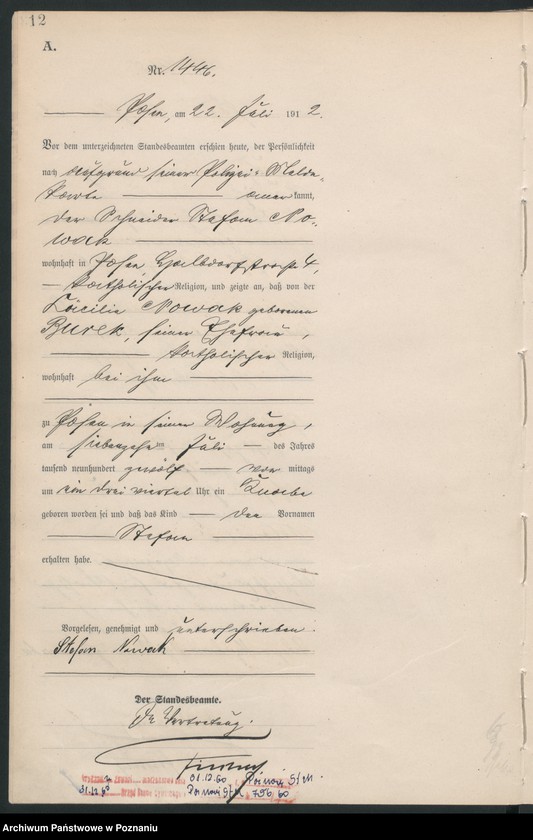 12
A.
Nr. 1446.
Posen, am 22. Juli 1912.
Vor dem unterzeichneten Standesbeamten erschien heute, der Persönlichkeit
nach aufgrund seiner Polizei-Melde-
karte anerkannt,
der Schneider Stefan No-
wak
wohnhaft in Posen, Halbdorfstraße 4,
katholischer Religion, und zeigte an, daß von der
Cäcilie Nowak geborenen
Burek, seiner Ehefrau,
katholischer Religion,
wohnhaft bei ihm
zu Posen in seiner Wohnung,
am siebenzehnten Juli des Jahres
tausend neunhundert zwölf vor mittags
um ein drei viertel Uhr ein Knabe
geboren worden sei und daß das Kind den Vornamen
Stefan
erhalten habe.
Vorgelesen, genehmigt und unterschrieben.
Stefan Nowak
Der Standesbeamte.
In Vertretung.
01.12.60
31.12.60
796/60
Archiwum Państwowe w Poznaniu